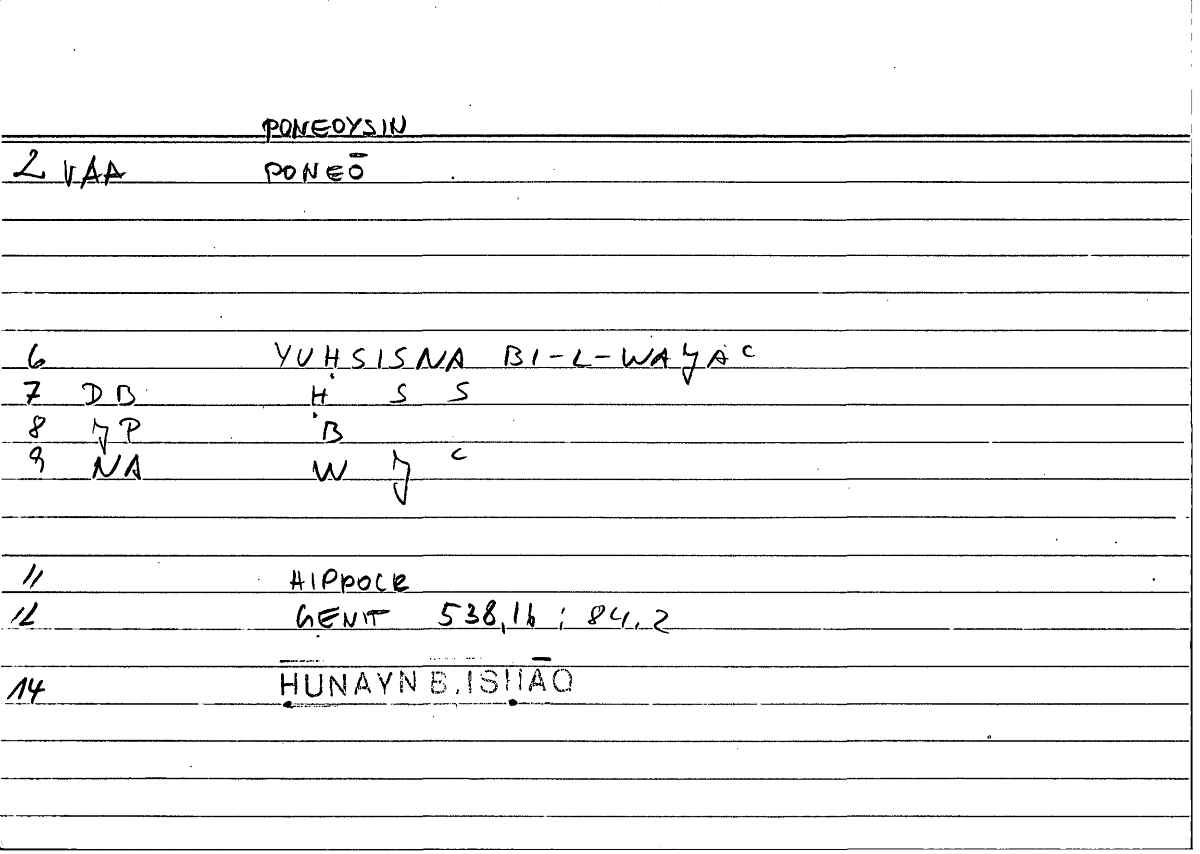 PONEOYSIN
2 VAA PONEŌ
6 YUḤSISNA BI-L-WAJAC
7 DB Ḥ S S
8 JP B
9 NA W J C
11 HIPPOCR
12 GENIT 538,16 ; 84.2
14 ḤUNAYN B. ISḤĀQ